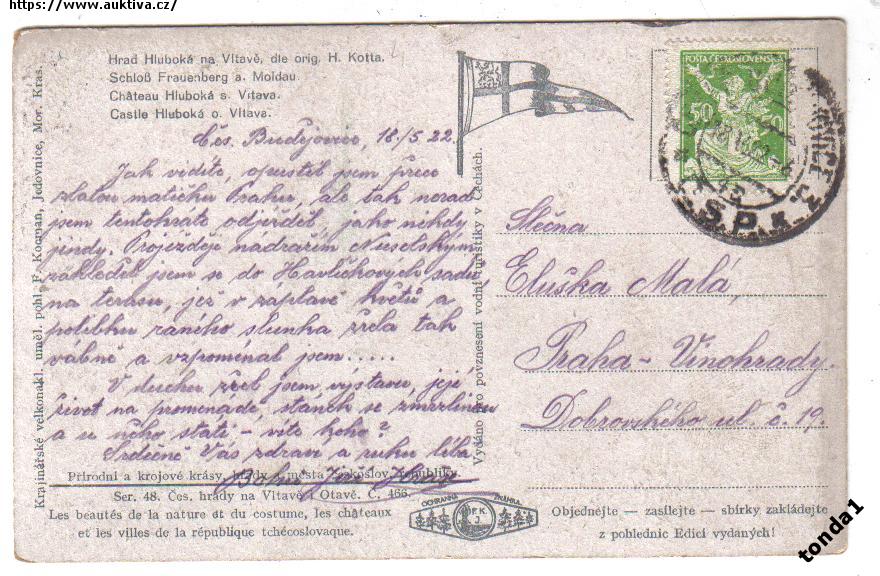 https://www.auktiva.cz/
Hrad Hluboká na Vltavě, dle orig. H. Kotta.
Schloß Frauenberg a. Moldau.
Château Hluboká s. Vltava.
Castle Hluboká o. Vltava.
Čes. Budějovice, 18./5 22.
Jak vidíte, opustil jsem přece
zlatou matičku Prahu, ale tak nerad
jsem tentokráte odjížděl, jako nikdy
jindy. Projížděje nádražím Nuselským
zahleděl jsem se do Havlíčkových sadů
na terasu, jež v záplavě květů a
polibku raného slunka zřela tak
vábně a vzpomínal jsem.....
V duchu zřel jsem výstavu, její
život na promenádě, stánek se zmrzlinou
a u něho státi - víte koho?
Srdečně Vás zdraví a ruku líbá
Slečna
Eluška Malá,
Praha - Vinohrady.
Dobrovského ul. č. 19.
POŠTA ČESKOSLOVENSKÁ
50 50
Krajinářské velkonakl. uměl. pohl. F. Kocman, Jedovnice, Mor. Kras.
Vydáno pro povznesení vodní turistiky v Čechách.
Přírodní a krojové krásy, hrady a města Českoslov. republiky.
Ser. 48. Čes. hrady na Vltavě i Otavě. Č. 466.
Les beautés de la nature et du costume, les châteaux
et les villes de la république tchécoslovaque.
OCHRANNÁ ZNÁMKA
F. K.
J.
Objednejte — zasílejte — sbírky zakládejte
z pohlednic Edicí vydaných!
tonda1